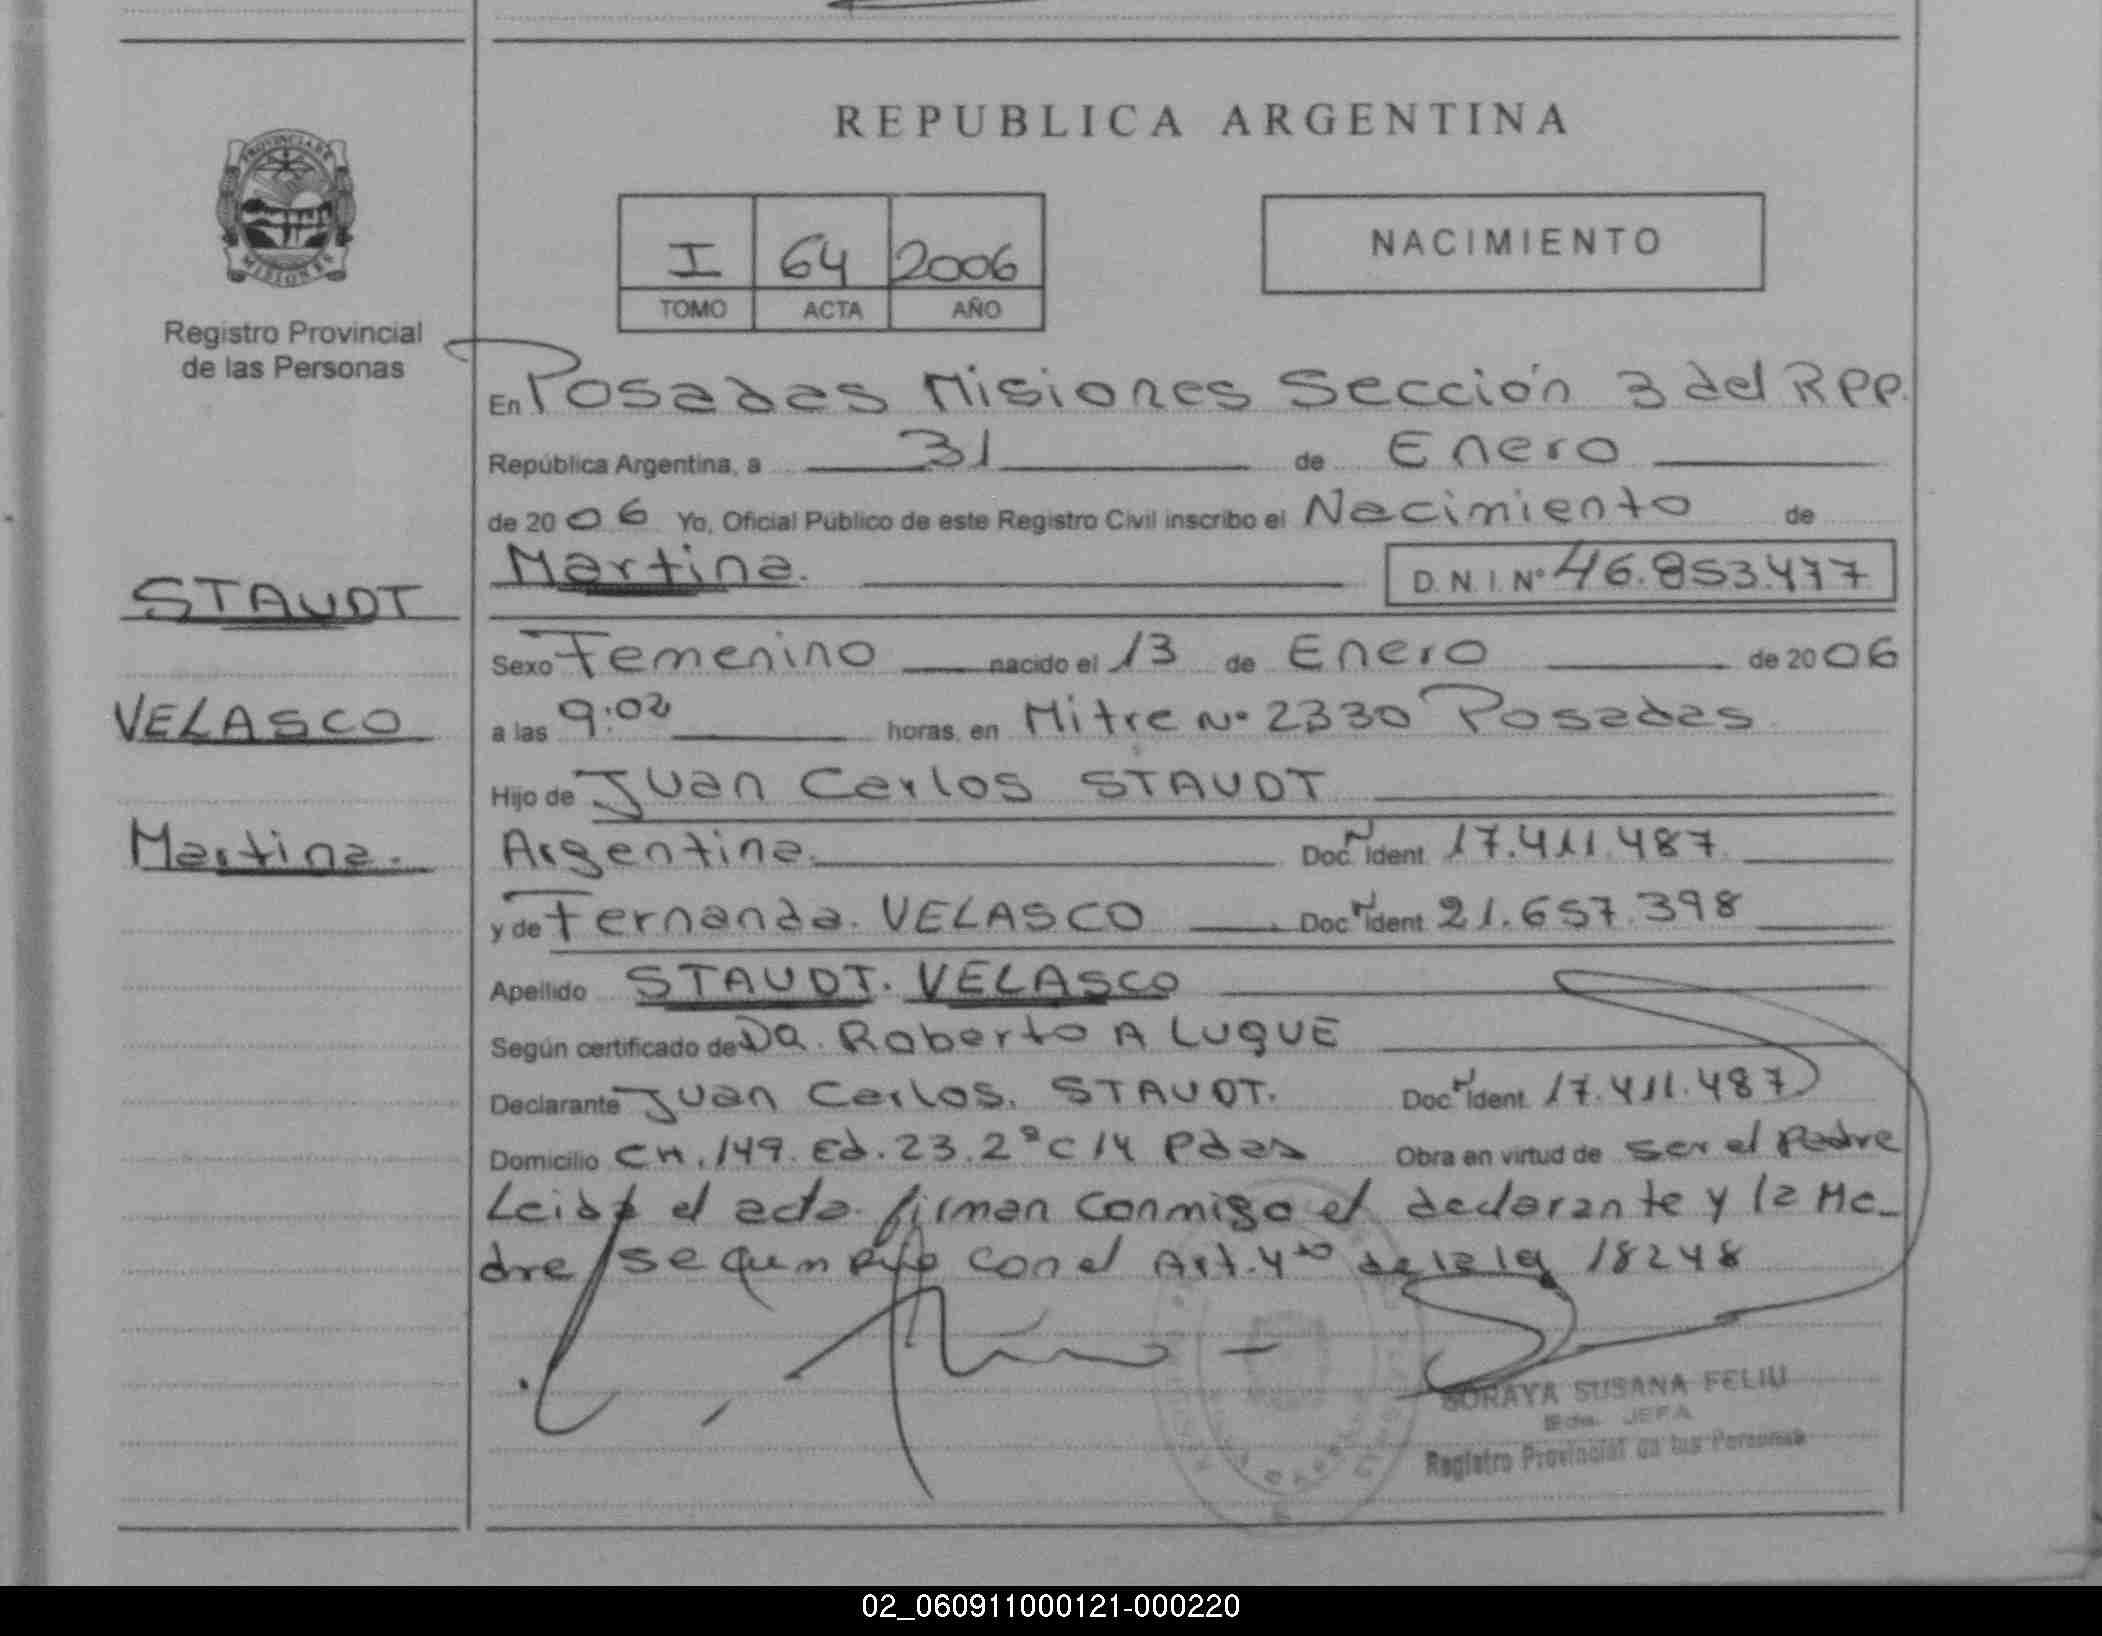 REPUBLICA ARGENTINA
PROVINCIA DE
MISIONES
Registro Provincial
de las Personas
I 64 2006
TOMO ACTA AÑO
NACIMIENTO
En Posadas Misiones Sección 3 del RPP.
República Argentina, a 31 de Enero
de 2006 Yo, Oficial Público de este Registro Civil inscribo el Nacimiento de
Martina. D.N.I. Nº 46.853.477
STAUDT
VELASCO
Martina.
Sexo Femenino nacido el 13 de Enero de 2006
a las 9:02 horas, en Mitre Nº 2330 Posadas
Hijo de Juan Carlos STAUDT
Argentina. Doc. Ident. 17.411.487
y de Fernanda. VELASCO Doc. Ident. 21.657.398
Apellido STAUDT. VELASCO
Según certificado de Roberto A LUQUE
Declarante Juan Carlos. STAUDT. Doc. Ident. 17.411.487
Domicilio CH. 149. Ed. 23. 2º C 14 Pdas Obra en virtud de ser el Padre
Leida el acta firman conmigo el declarante y la Ma-
dre se con el Art. 4to de la ley 18248
SORAYA SUSANA FELIU
JEFA
Registro Provincial de las Personas
02_060911000121-000220